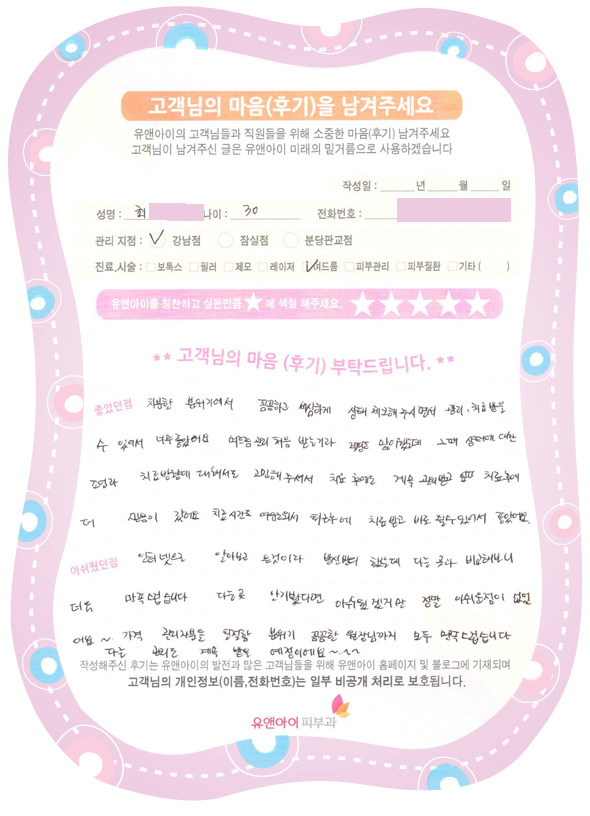 고객님의 마음(후기)을 남겨주세요
유앤아이의 고객님들과 직원들을 위해 소중한 마음(후기) 남겨주세요
고객님이 남겨주신 글은 유앤아이 미래의 밑거름으로 사용하겠습니다
작성일 : 년 월 일
성명 : 최 나이 : 30 전화번호 :
관리 지점 : 강남점 잠실점 분당판교점
진료,시술 : 보톡스 필러 제모 레이저 여드름 피부관리 피부질환 기타 ( )
유앤아이를 칭찬하고 싶은만큼 ★ 에 색칠 해주세요. ★★★★★
** 고객님의 마음 (후기) 부탁드립니다. **
좋았던점 차분한 분위기에서 꼼꼼하고 세심하게 상태 체크해 주시면서 관리, 치료받을
수 있어서 너무 좋았어요 여드름 관리 처음 받는거라 걱정도 많이했는데 그때 상태에 대한
조언과 치료방향에 대해서도 고민해 주셔서 치료 후에도 계속 관리받고 치료후에
더 믿음이 갔어요 치료시간도 여유로워서 퇴근후에 치료받고 바로 쉴수있어서 좋았어요.
아쉬웠던점 인터넷으로 알아보고 온것이라 반신반의 했는데 다른 곳과 비교해보니
더욱 만족스럽습니다 다른곳 안가봤다면 아쉬웠겠지만 정말 아쉬운점이 없었
어요 ~ 가격 관리자분들 친절함 분위기 꼼꼼한 원장님까지 모두 만족스럽습니다
다른 관리도 계속 받을 예정이에요 ~^^
작성해주신 후기는 유앤아이의 발전과 많은 고객님들을 위해 유앤아이 홈페이지 및 블로그에 기재되며
고객님의 개인정보(이름,전화번호)는 일부 비공개 처리로 보호됩니다.
유앤아이 피부과